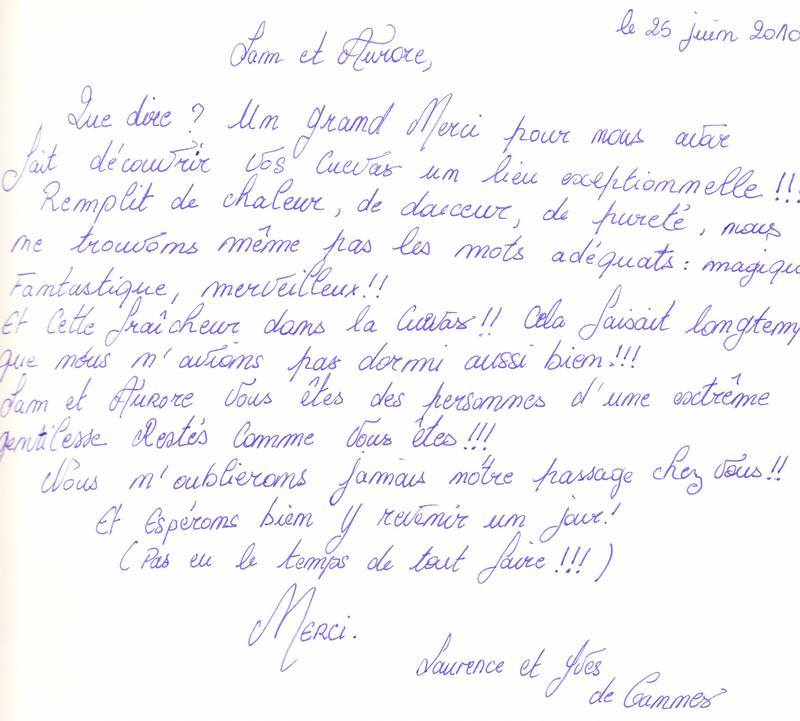 le 25 juin 2010
Sam et Aurore,
Que dire ? Un grand Merci pour nous avoir
fait découvrir vos Cuevas un lieu exceptionnelle !!!
Remplit de chaleur, de douceur, de pureté, nous
ne trouvons même pas les mots adéquats : magique
Fantastique, merveilleux !!
Et Cette fraîcheur dans la Cuevas !! Cela faisait longtemp
que nous n'avions pas dormi aussi bien !!!
Sam et Aurore vous êtes des personnes d'une extrême
gentilesse Restés Comme vous êtes !!!
Nous n'oublierons jamais nôtre passage chez vous !!
Et Espérons bien y revenir un jour !
( Pas eu le temps de tout faire !!! )
Merci.
Laurence et Yves
de Cannes